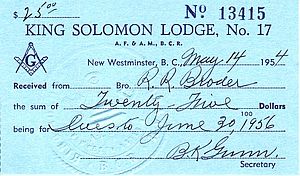 $ 25.00 No 13415
KING SOLOMON LODGE, No. 17
A. F. & A. M., B. C. R.
New Westminster, B. C. May 14 1954
Received from Bro. R. R. Broder
the sum of Twenty-Five 100 Dollars
being for Dues to June 30, 1956
B.K. Gunn
Secretary